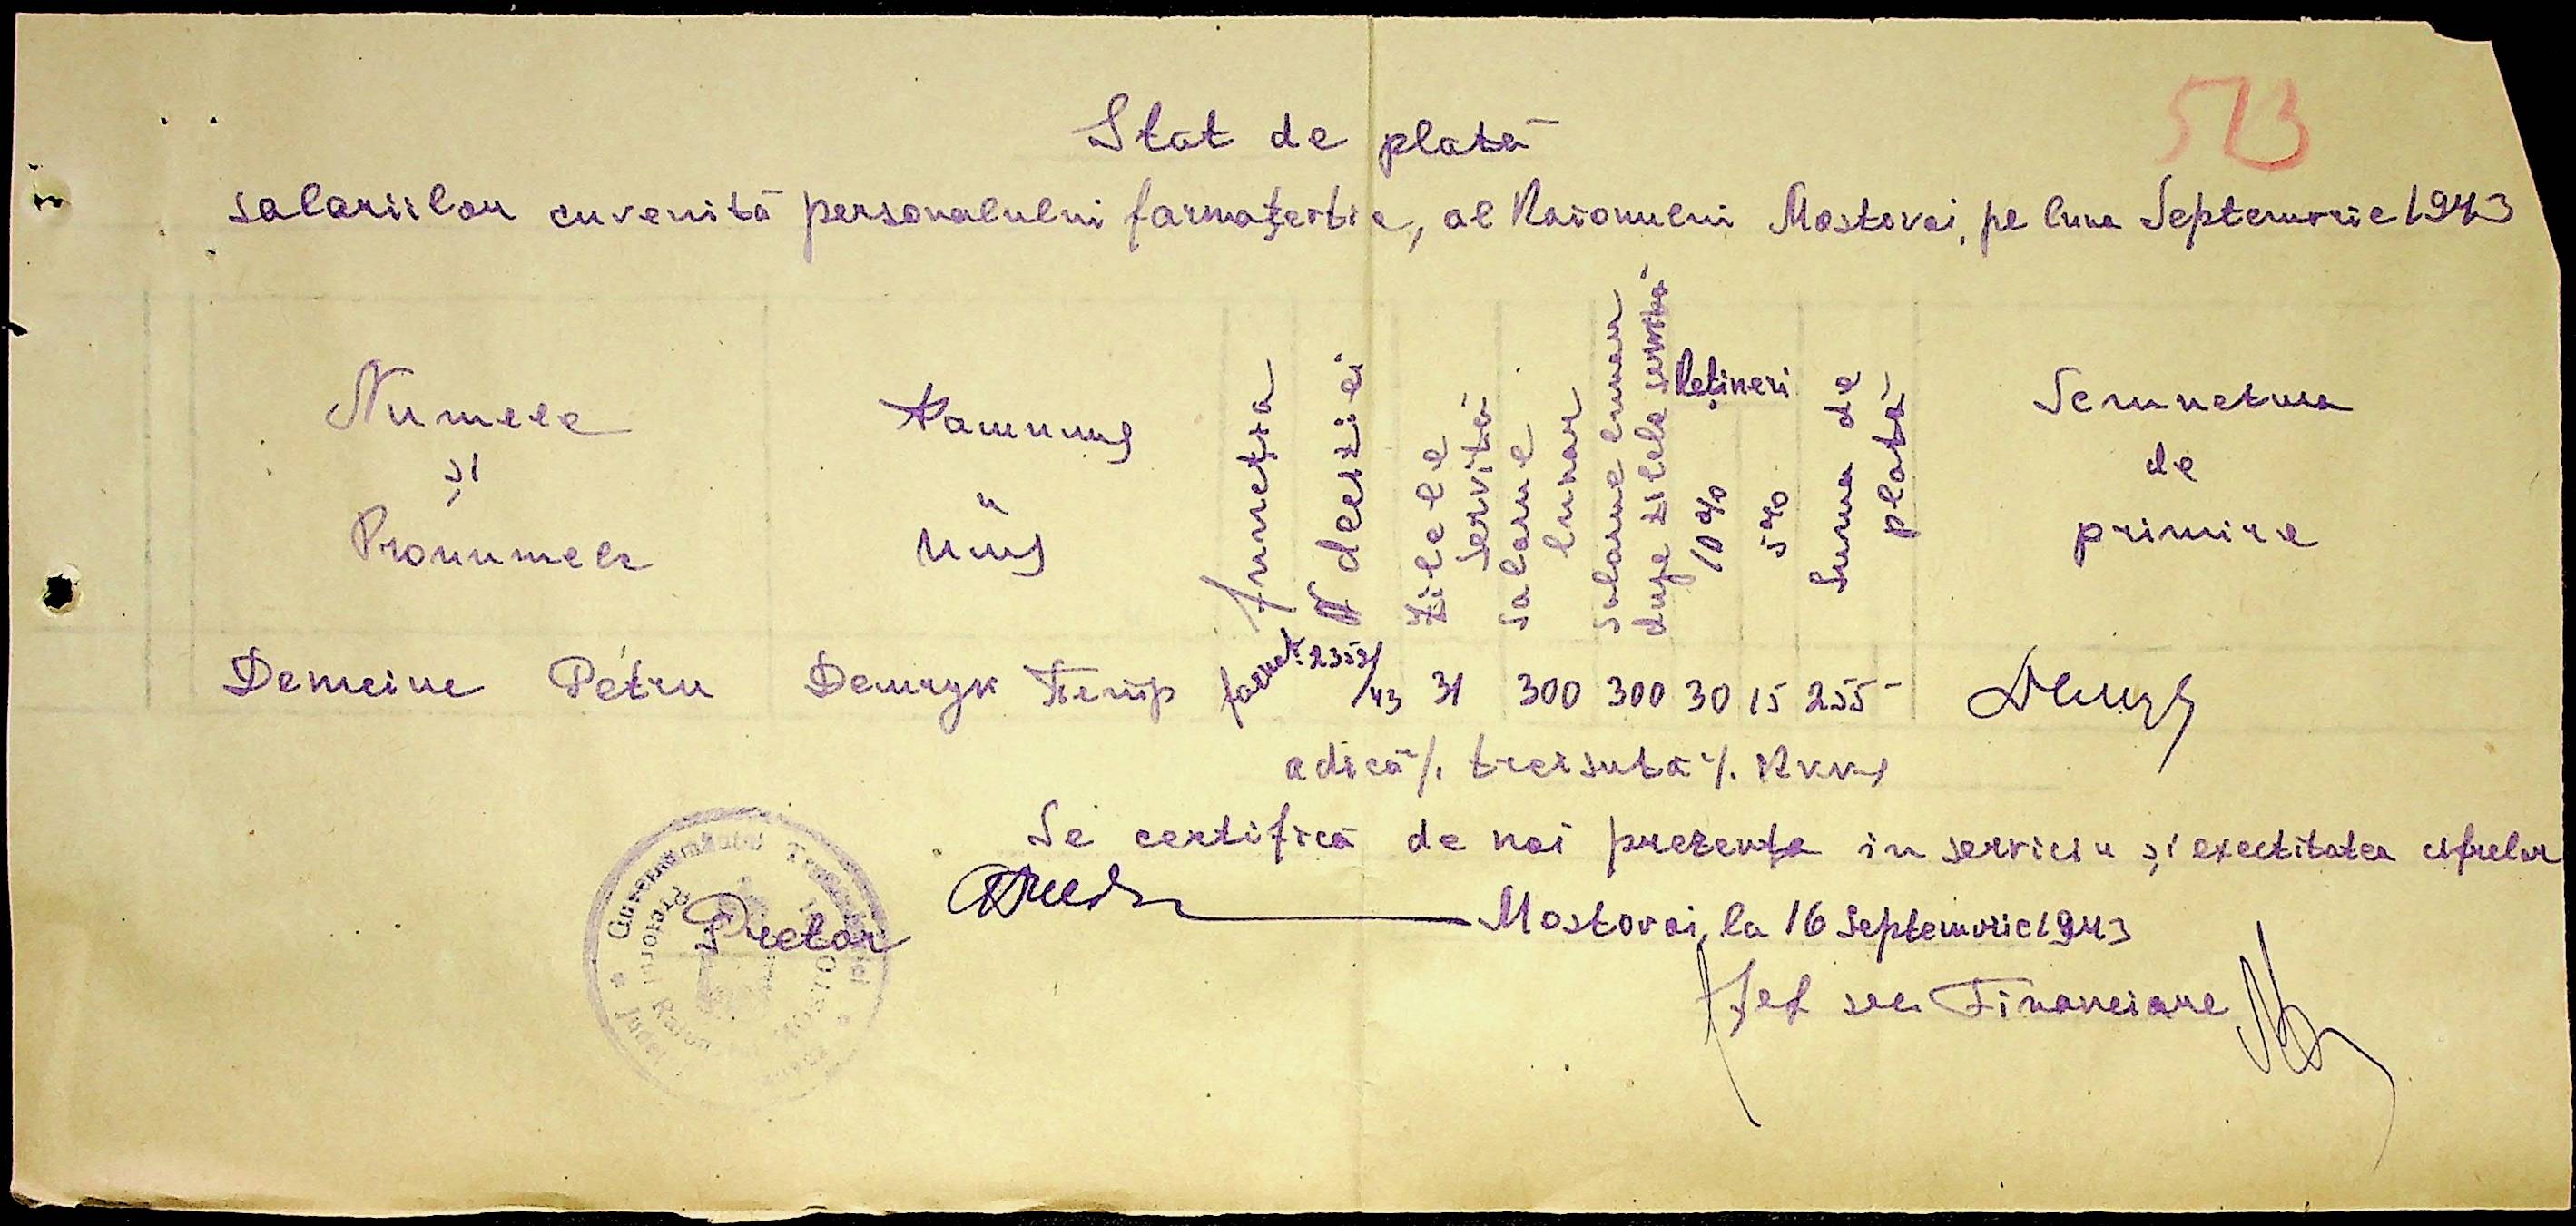 513
Stat de plată
salariilor cuvenită personalului farmaţeotic, al Raionului Mostovoi, pe luna Septemvrie 1943
Numele
şi
Pronumele
Фамилия
и
имя
Funcţia
N deciziei
Zilele servită
Salarul lunar
Salarul lunar după zilele servită
Reţineri
10%
5%
Suma de plată
Semnetura
de
primire
Demcine Petru
Демчук Петр
farmet. 2353/43 31 300 300 30 15 255-
adică /. treisută /. RKKS
Se certifică de noi prezenţa in serviciu şi exectitatea cifrelor
Mostovoi, la 16 Septemvrie 1943
Pretor
Şef sec. Financiare
Guvernământul Transnistriei
Pretorul Raion
Judeţ